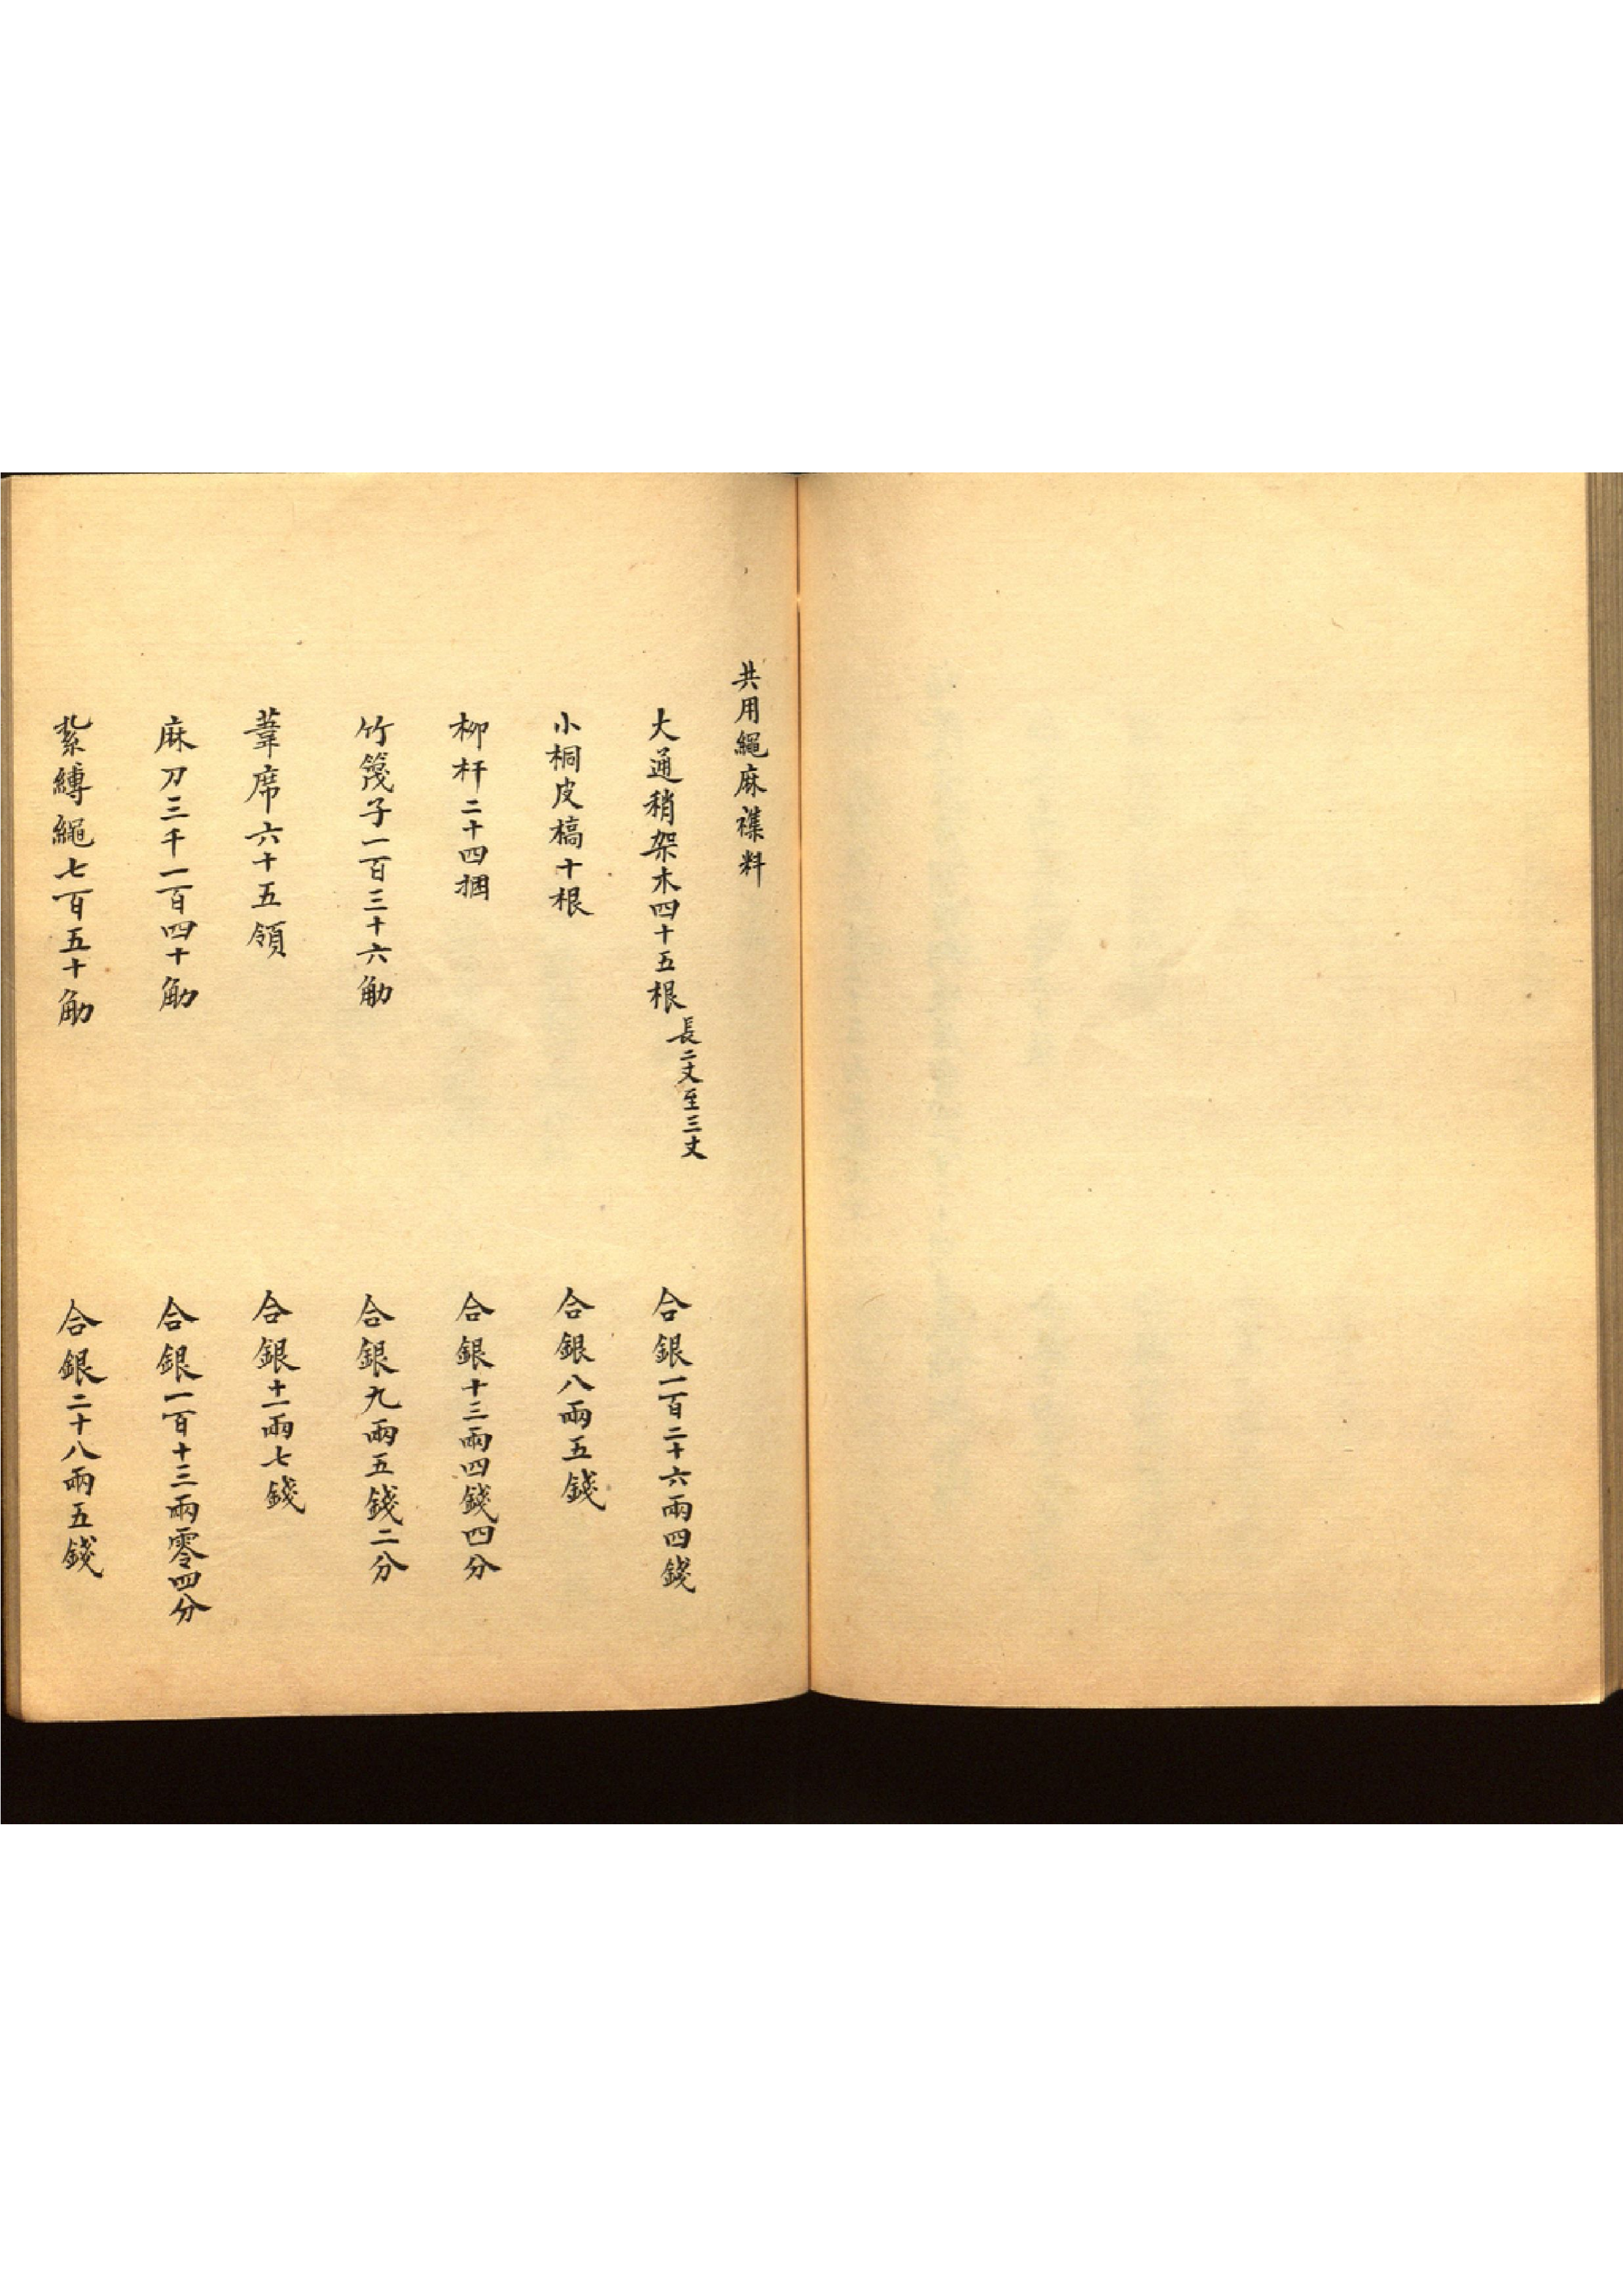 共用繩麻襍料
大通稍架木四十五根 長二丈至三丈 合銀一百二十六兩四錢
小桐皮槁十根 合銀八兩五錢
柳杆二十四捆 合銀十三兩四錢四分
竹篾子一百三十六觔 合銀九兩五錢二分
葦席六十五領 合銀十一兩七錢
麻刀三千一百四十觔 合銀一百十三兩零四分
紮縛繩七百五十觔 合銀二十八兩五錢